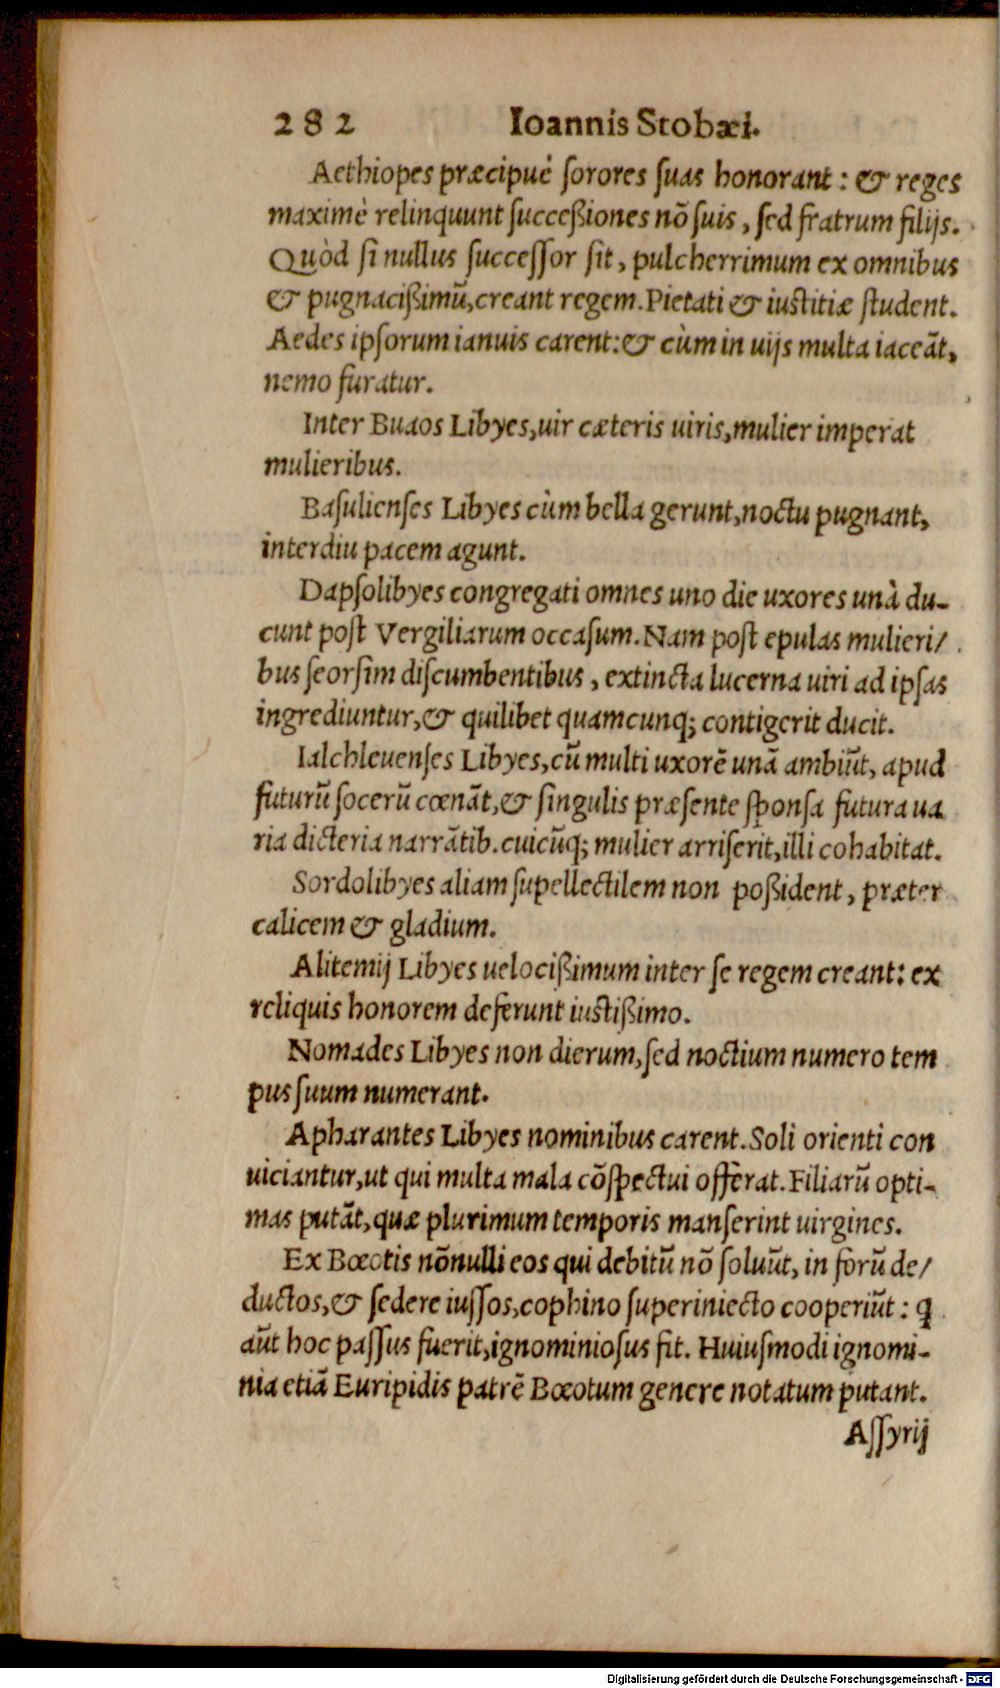 282 Ioannis Stobæi.
Aethiopes præcipuè ſorores ſuas honorant : & reges
maximè relinquunt ſucceßiones nõ ſuis , ſed fratrum filijs.
Quòd ſi nullus ſucceſſor ſit , pulcherrimum ex omnibus
& pugnacißimũ, creant regem. Pietati & iustitiæ ſtudent.
Aedes ipſorum ianuis carent: & cùm in uijs multa iaceãt,
nemo furatur.
Inter Buaos Libyes, uir cæteris uiris, mulier imperat
mulieribus.
Baſulienſes Libyes cùm bella gerunt, noctu pugnant,
interdiu pacem agunt.
Dapſolibyes congregati omnes uno die uxores unà du-
cunt poſt Vergiliarum occaſum. Nam poſt epulas mulieri/
bus ſeorſim diſcumbentibus , extincta lucerna uiri ad ipſas
ingrediuntur, & quilibet quamcunq; contigerit ducit.
Ialchleuenſes Libyes, cũ multi uxorẽ unã ambiũt, apud
futurũ ſocerũ cœnãt, & ſingulis præſente ſponſa futura ua
ria dicteria narrãtib. cuicũq; mulier arriſerit, illi cohabitat.
Sordolibyes aliam ſupellectilem non poßident , præter
calicem & gladium.
Alitemij Libyes uelocißimum inter ſe regem creant: ex
reliquis honorem deferunt iustißimo.
Nomades Libyes non dierum, ſed noctium numero tem
pus ſuum numerant.
Apharantes Libyes nominibus carent. Soli orienti con
uiciantur, ut qui multa mala cõſpectui offerat. Filiarũ opti-
mas putãt, quæ plurimum temporis manſerint uirgines.
Ex Bœotis nõnulli eos qui debitũ nõ ſoluũt, in forũ de/
ductos, & ſedere iuſſos, cophino ſuperiniecto cooperiũt : q
aũt hoc paſſus fuerit, ignominioſus fit. Huiuſmodi ignomi-
nia etiã Euripidis patrẽ Bœotum genere notatum putant.
Aſſyrij
Digitalisierung gefördert durch die Deutsche Forschungsgemeinschaft - DFG